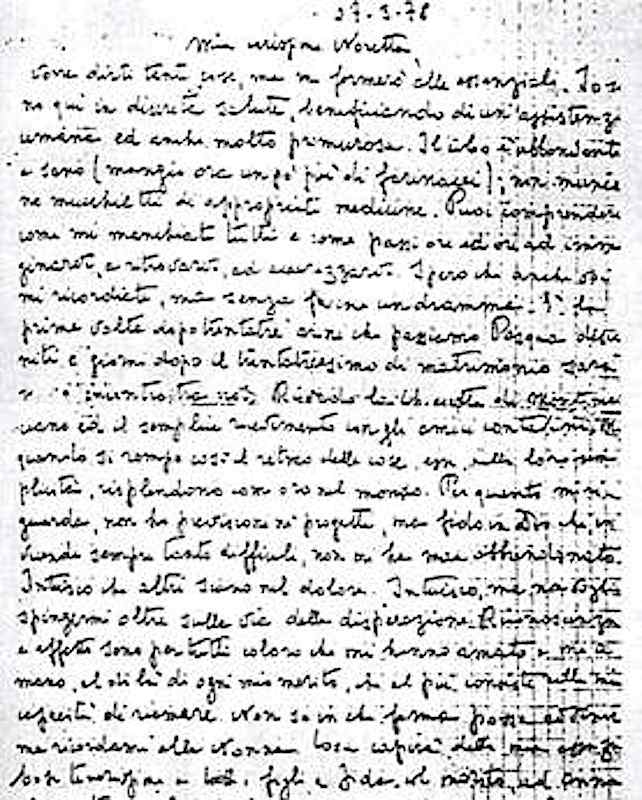 27-3-78
mia carissima Noretta,
vorrei dirti tante cose, ma mi fermerò alle essenziali. Io so
no qui in discreta salute, beneficiando di un'assistenza
umana ed anche molto premurosa. Il cibo è abbondante
e sano (mangio ora un po' più di farinacei); non manca
no mucchietti di appropriate medicine. Puoi comprendere
come mi manchiate tutti e come passi ore ed ore ad imma
ginarvi, a ritrovarvi, ad accarezzarvi. Spero che anche voi
mi ricordiate, ma senza farne un dramma. È la
prima volta dopo trentatre anni che passiamo Pasqua disu
niti e giorni dopo il trentatreesimo di matrimonio sarà
incontro tra noi. Ricordo la chiesetta di Montema
rciano ed il semplice ricevimento con gli amici contadini. Ma
quando si rompe così il ritmo delle cose, esse, nella loro sem
plicità, risplendono come oro nel mondo. Per quanto mi ri
guarda, non ho previsioni né progetti, ma fido in Dio che, in
vicende sempre tanto difficili, non mi ha mai abbandonato.
Intuisco che altri siano nel dolore. Intuisco, ma non voglio
spingermi oltre sulla via della disperazione. Riconoscenza
e affetto sono per tutti coloro che mi hanno amato e mi a
mano, al di là di ogni mio merito, che al più consiste nella mia
capacità di riamare. Non so in che forma possa avvenire
ma ricordami alla Nonna. Cosa capirà della mia assenza?
Cose tenerissime a tutti i figli a Fida col marito, ad Anna